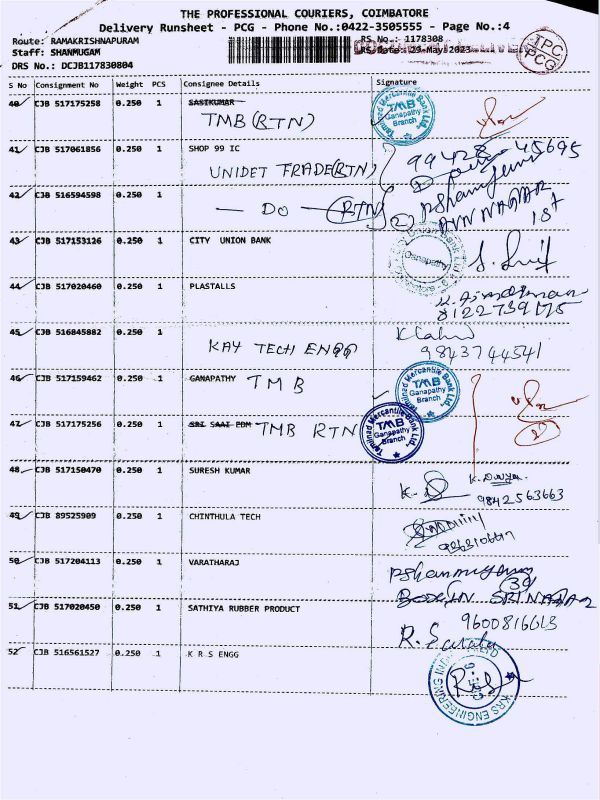 THE PROFESSIONAL COURIERS, COIMBATORE
Delivery Runsheet - PCG - Phone No.:0422-3505555 - Page No.:4
Route: RAMAKRISHNAPURAM
RS No.: 1178308
Staff: SHANMUGAM
RS Date: 29-May-2023
TPC
PCG
DRS No.: DCJB117830804
S No Consignment No Weight PCS Consignee Details Signature
40 CJB 517175258 0.250 1 SASIKUMAR
TMB (RTN)
TMB
Ganapathy
Branch
Tamilnad Mercantile Bank Ltd.
41 CJB 517061856 0.250 1 SHOP 99 IC
UNIDET TRADE (RTN)
99428 45695
42 CJB 516594598 0.250 1
— DO — (RTN)
2
AVN NAGAR
1st
43 CJB 517153126 0.250 1 CITY UNION BANK
Ganapathy
44 CJB 517020460 0.250 1 PLASTALLS
8122739175
45 CJB 516845882 0.250 1
KAY TECH ENGG
9843744541
46 CJB 517159462 0.250 1 GANAPATHY TMB
Tamilnad Mercantile Bank Ltd.
TMB
Ganapathy
Branch
47 CJB 517175256 0.250 1 SRI SAAI EDM TMB RTN
Tamilnad Mercantile Bank Ltd.
TMB
Ganapathy
Branch
48 CJB 517150470 0.250 1 SURESH KUMAR
K. Divya
9842563663
49 CJB 89525909 0.250 1 CHINTHULA TECH
50 CJB 517204113 0.250 1 VARATHARAJ
39
SRI NAGAR
51 CJB 517020450 0.250 1 SATHIYA RUBBER PRODUCT
9600816613
52 CJB 516561527 0.250 1 K R S ENGG
KRS ENGINEERING